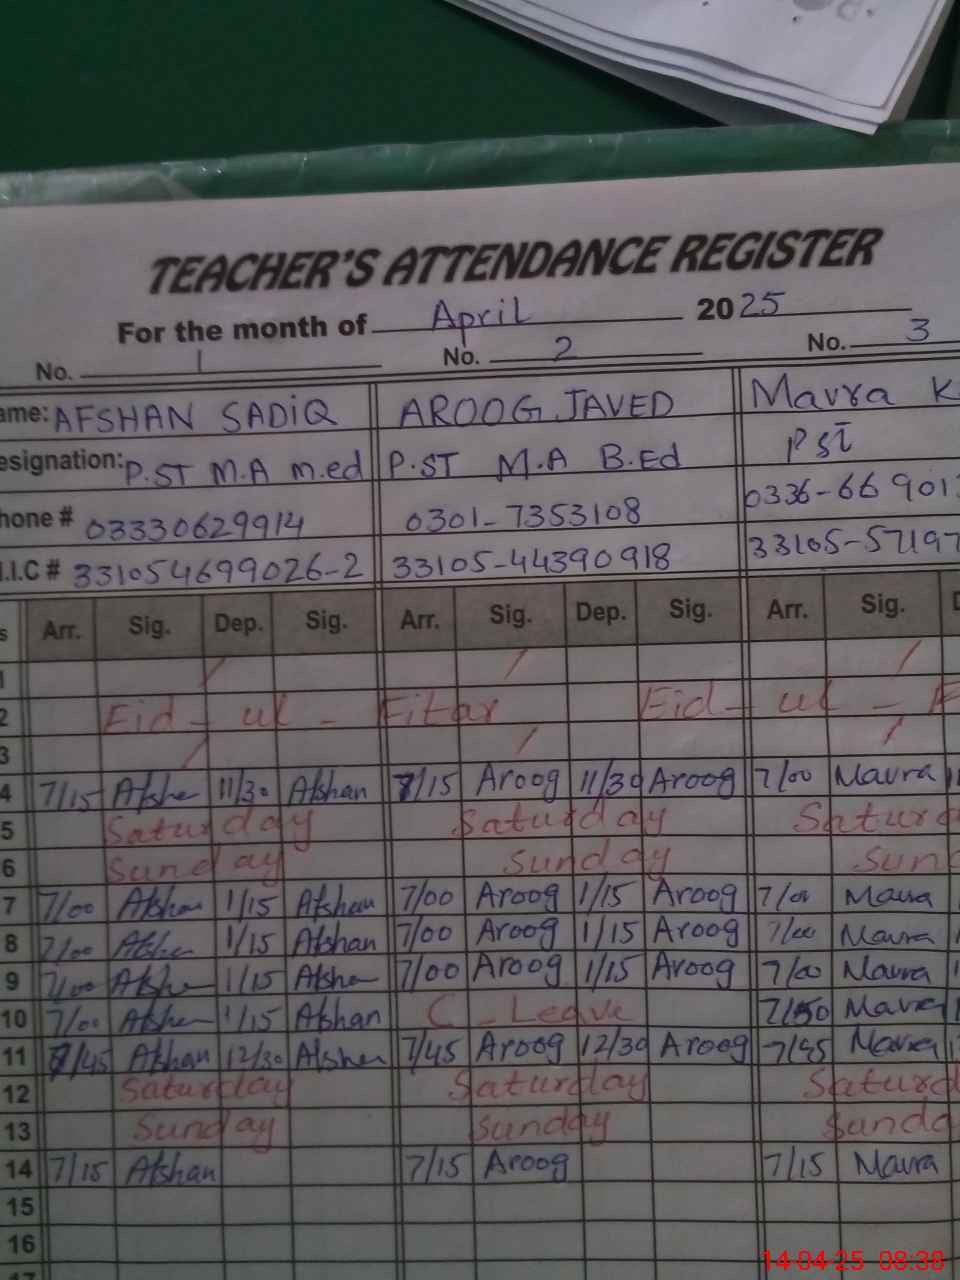 TEACHER'S ATTENDANCE REGISTER
For the month of April 2025
No. 1 No. 2 No. 3
ame: AFSHAN SADIQ AROOG JAVED Mavra K
esignation: P.ST M.A M.ed P.ST M.A B.Ed PST
hone # 03330629914 0301-7353108 0336-66901
.I.C # 331054699026-2 33105-44390918 33105-57197
s Arr. Sig. Dep. Sig. Arr. Sig. Dep. Sig. Arr. Sig. D
1 / / /
2 Eid - ul - Fitar Eid - ul - F
3 / / /
4 7/15 Afshe 11/30 Afshan 7/15 Aroog 11/30 Aroog 7/00 Mavra 1
5 Saturday Saturday Saturd
6 Sunday Sunday Sun
7 7/00 Afshan 1/15 Afshan 7/00 Aroog 1/15 Aroog 7/00 Mavra
8 7/00 Afshe 1/15 Afshan 7/00 Aroog 1/15 Aroog 7/00 Mavra
9 7/00 Afshe 1/15 Afshan 7/00 Aroog 1/15 Aroog 7/00 Mavra
10 7/00 Afshen 1/15 Afshan C - Leave Mavra
11 7/45 Afshan 12/30 Afshan 7/45 Aroog 12/30 Aroog 7/45 Mavra
12 Saturday Saturday Saturd
13 Sunday Sunday Sunda
14 7/15 Afshan 7/15 Aroog 7/15 Mavra
15
16
17
14-04-25 08:38